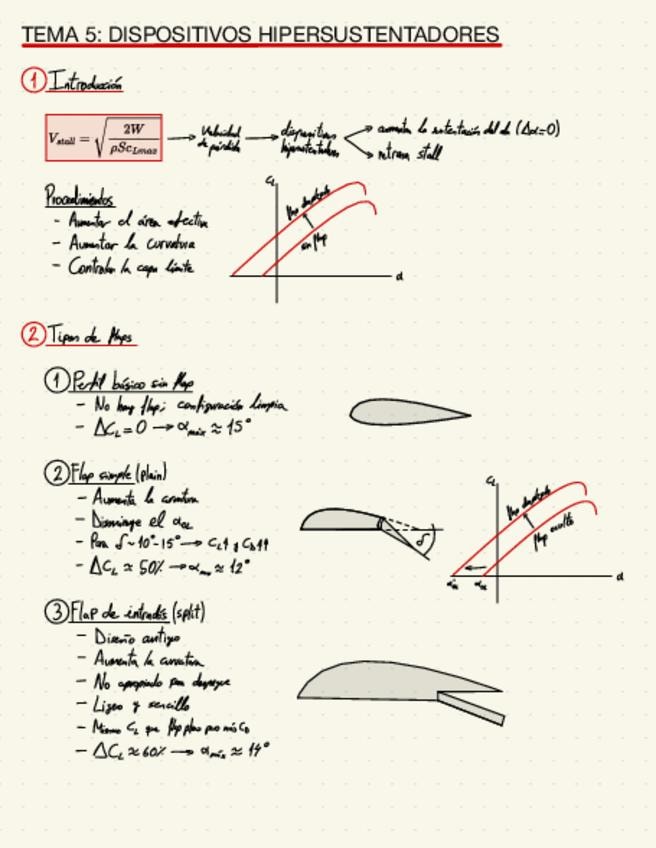 TEMA 5: DISPOSITIVOS HIPERSUSTENTADORES
① Introducción
V_stall = √(2W / ρSc_Lmax) → Velocidad de pérdida → dispositivos hipersustentadores
→ aumenta la sustentación del ala (Δα=0)
→ retrasa stall
Procedimientos
- Aumentar el área efectiva
- Aumentar la curvatura
- Controlar la capa límite
C_L
flap desplegado
sin flap
α
② Tipos de flaps
① Perfil básico sin flap
- No hay flap; configuración limpia
- ΔC_L = 0 → α_máx ≈ 15°
② Flap simple (plain)
- Aumenta la curvatura
- Disminuye el α_OL
- Para δ ~ 10°-15° → C_L↑ y C_D↑↑
- ΔC_L ≈ 50% → α_máx ≈ 12°
δ
C_L
flap desplegado
flap oculto
α
③ Flap de intradós (split)
- Diseño antiguo
- Aumenta la curvatura
- No apropiado para despegue
- Ligero y sencillo
- Mismo C_L que flap plano pero más C_D
- ΔC_L ≈ 60% → α_máx ≈ 14°